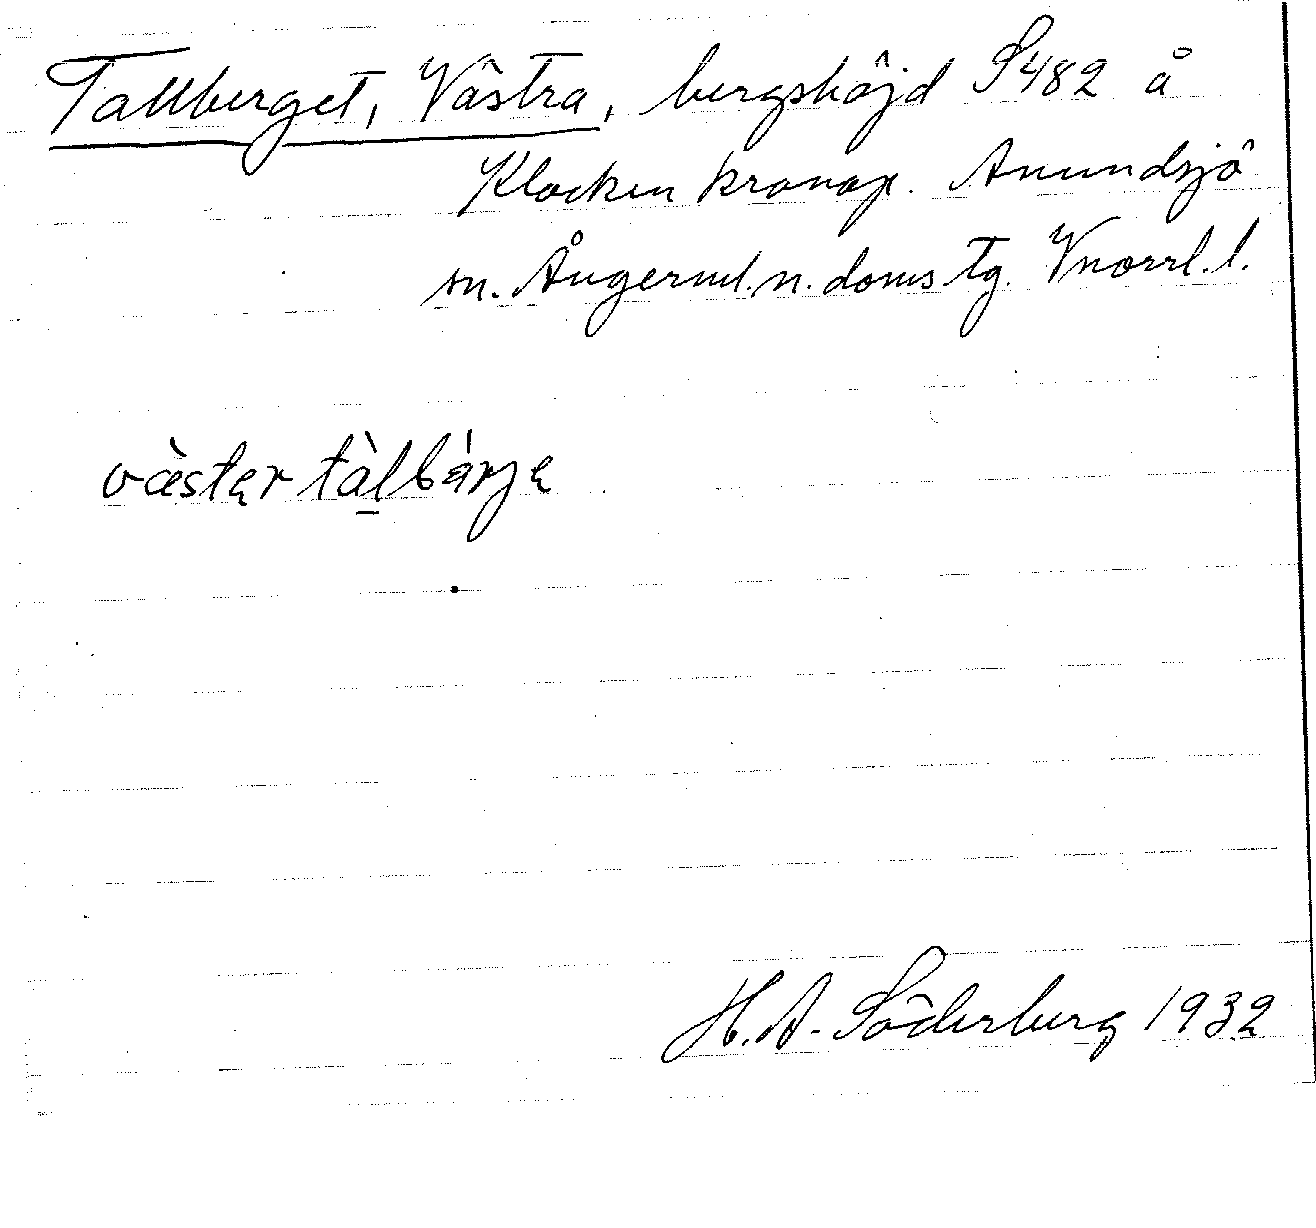 Tallberget, Västra, bergshöjd S482 å
Klocken kronop. Anundsjö
sn. Ångerml. n. doms tg. Vnorrl. l.
väster tàlbárje
H. A. Söderberg 1932